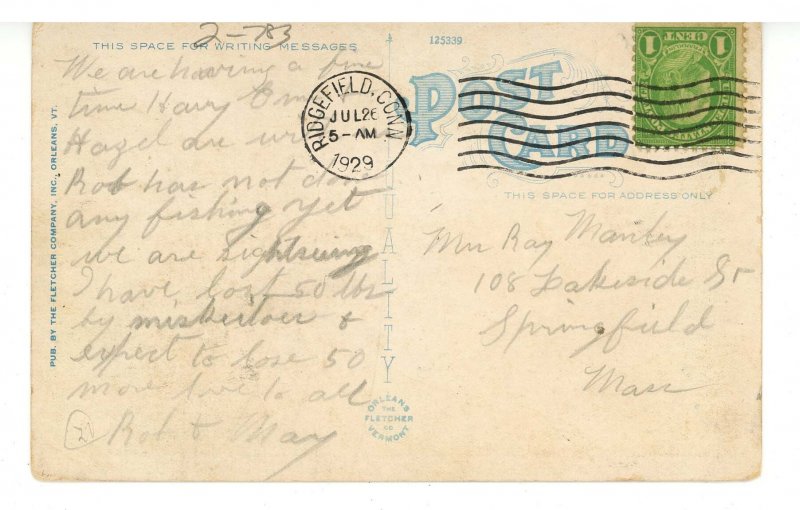 2-783
THIS SPACE FOR WRITING MESSAGES
125339
We are having a fine
time Harry Emma
Hazel are
Rob has not done
any fishing yet
we are sightseeing
I have lost 50 lbs
by &
expect to lose 50
more love to all
Rob & May
PUB. BY THE FLETCHER COMPANY, INC., ORLEANS, VT.
RIDGEFIELD, CONN
JUL 26
5-AM
1929
POST
CARD
QUALITY
ORLEANS
THE
FLETCHER
CO
VERMONT
1 CENT 1
THIS SPACE FOR ADDRESS ONLY
Mrs Ray Manley
108 Lakeside St
Springfield
Mass